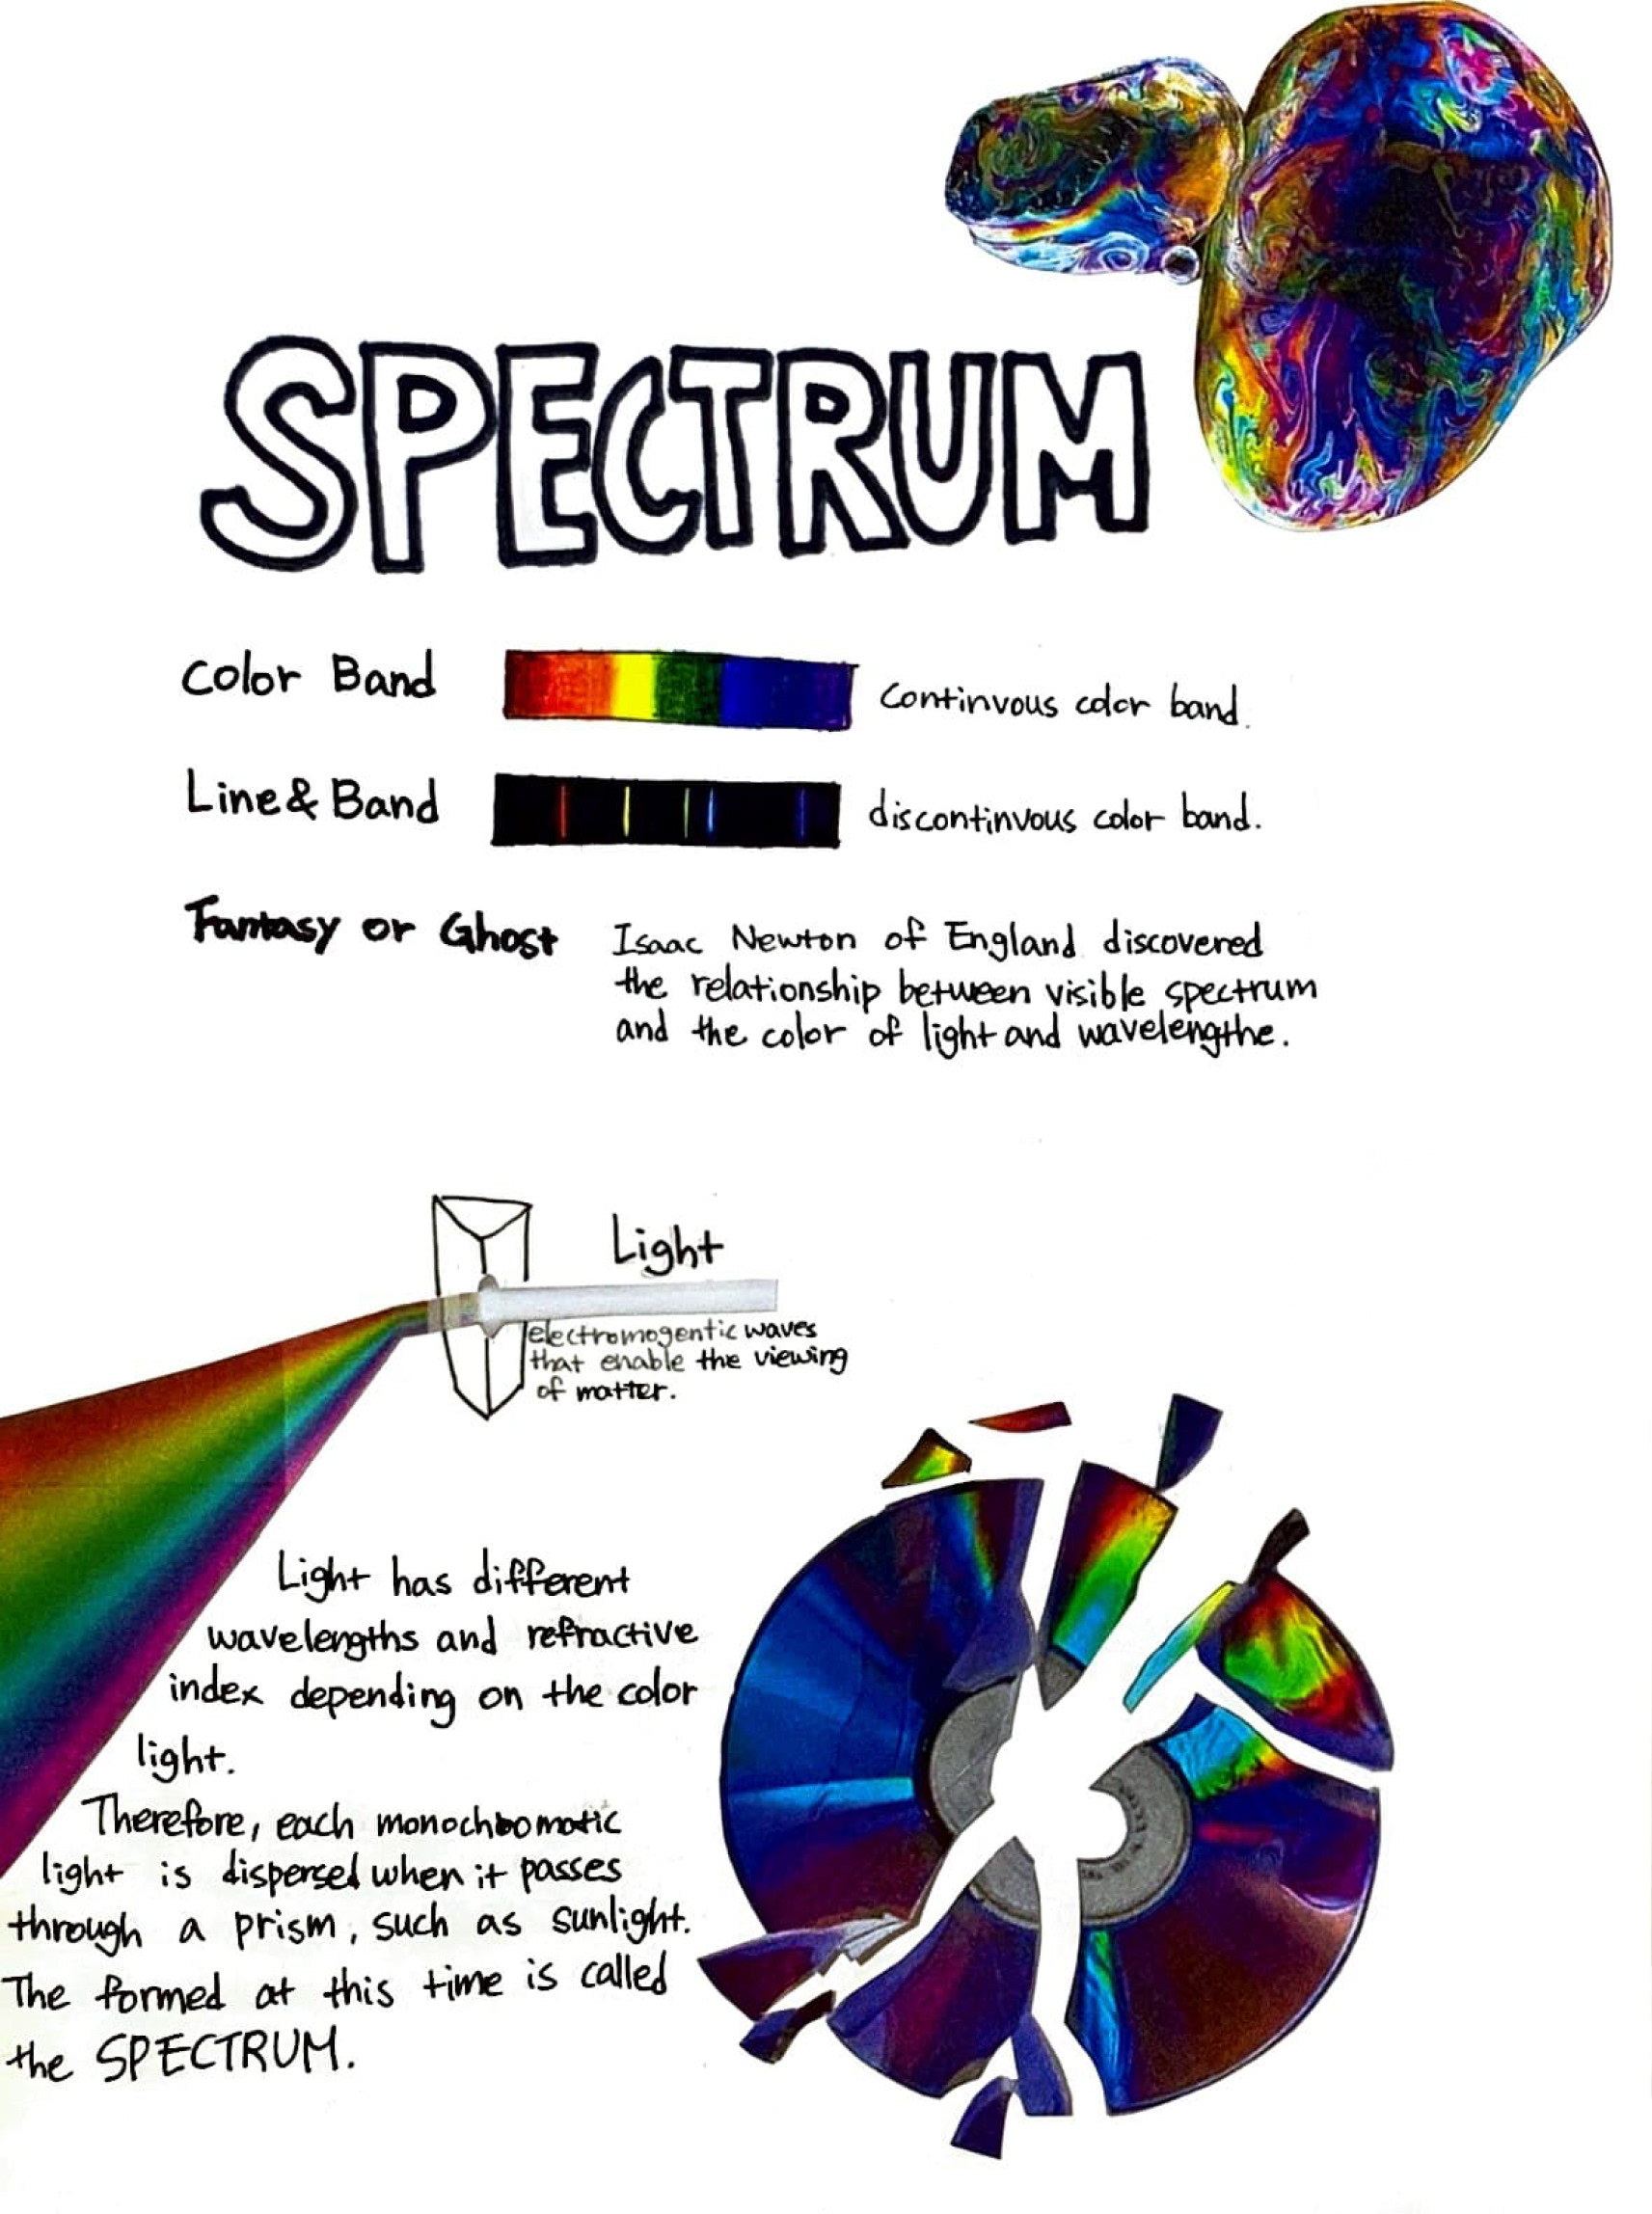 SPECTRUM
Color Band
Continvous color band.
Line & Band
discontinvous color band.
Fantasy or Ghost
Isaac Newton of England discovered
the relationship between visible spectrum
and the color of light and wavelengthe.
Light
electromogentic waves
that enable the viewing
of matter.
Light has different
wavelengths and refractive
index depending on the color
light.
Therefore, each monochromatic
light is dispersed when it passes
through a prism, such as sunlight.
The formed at this time is called
the SPECTRUM.